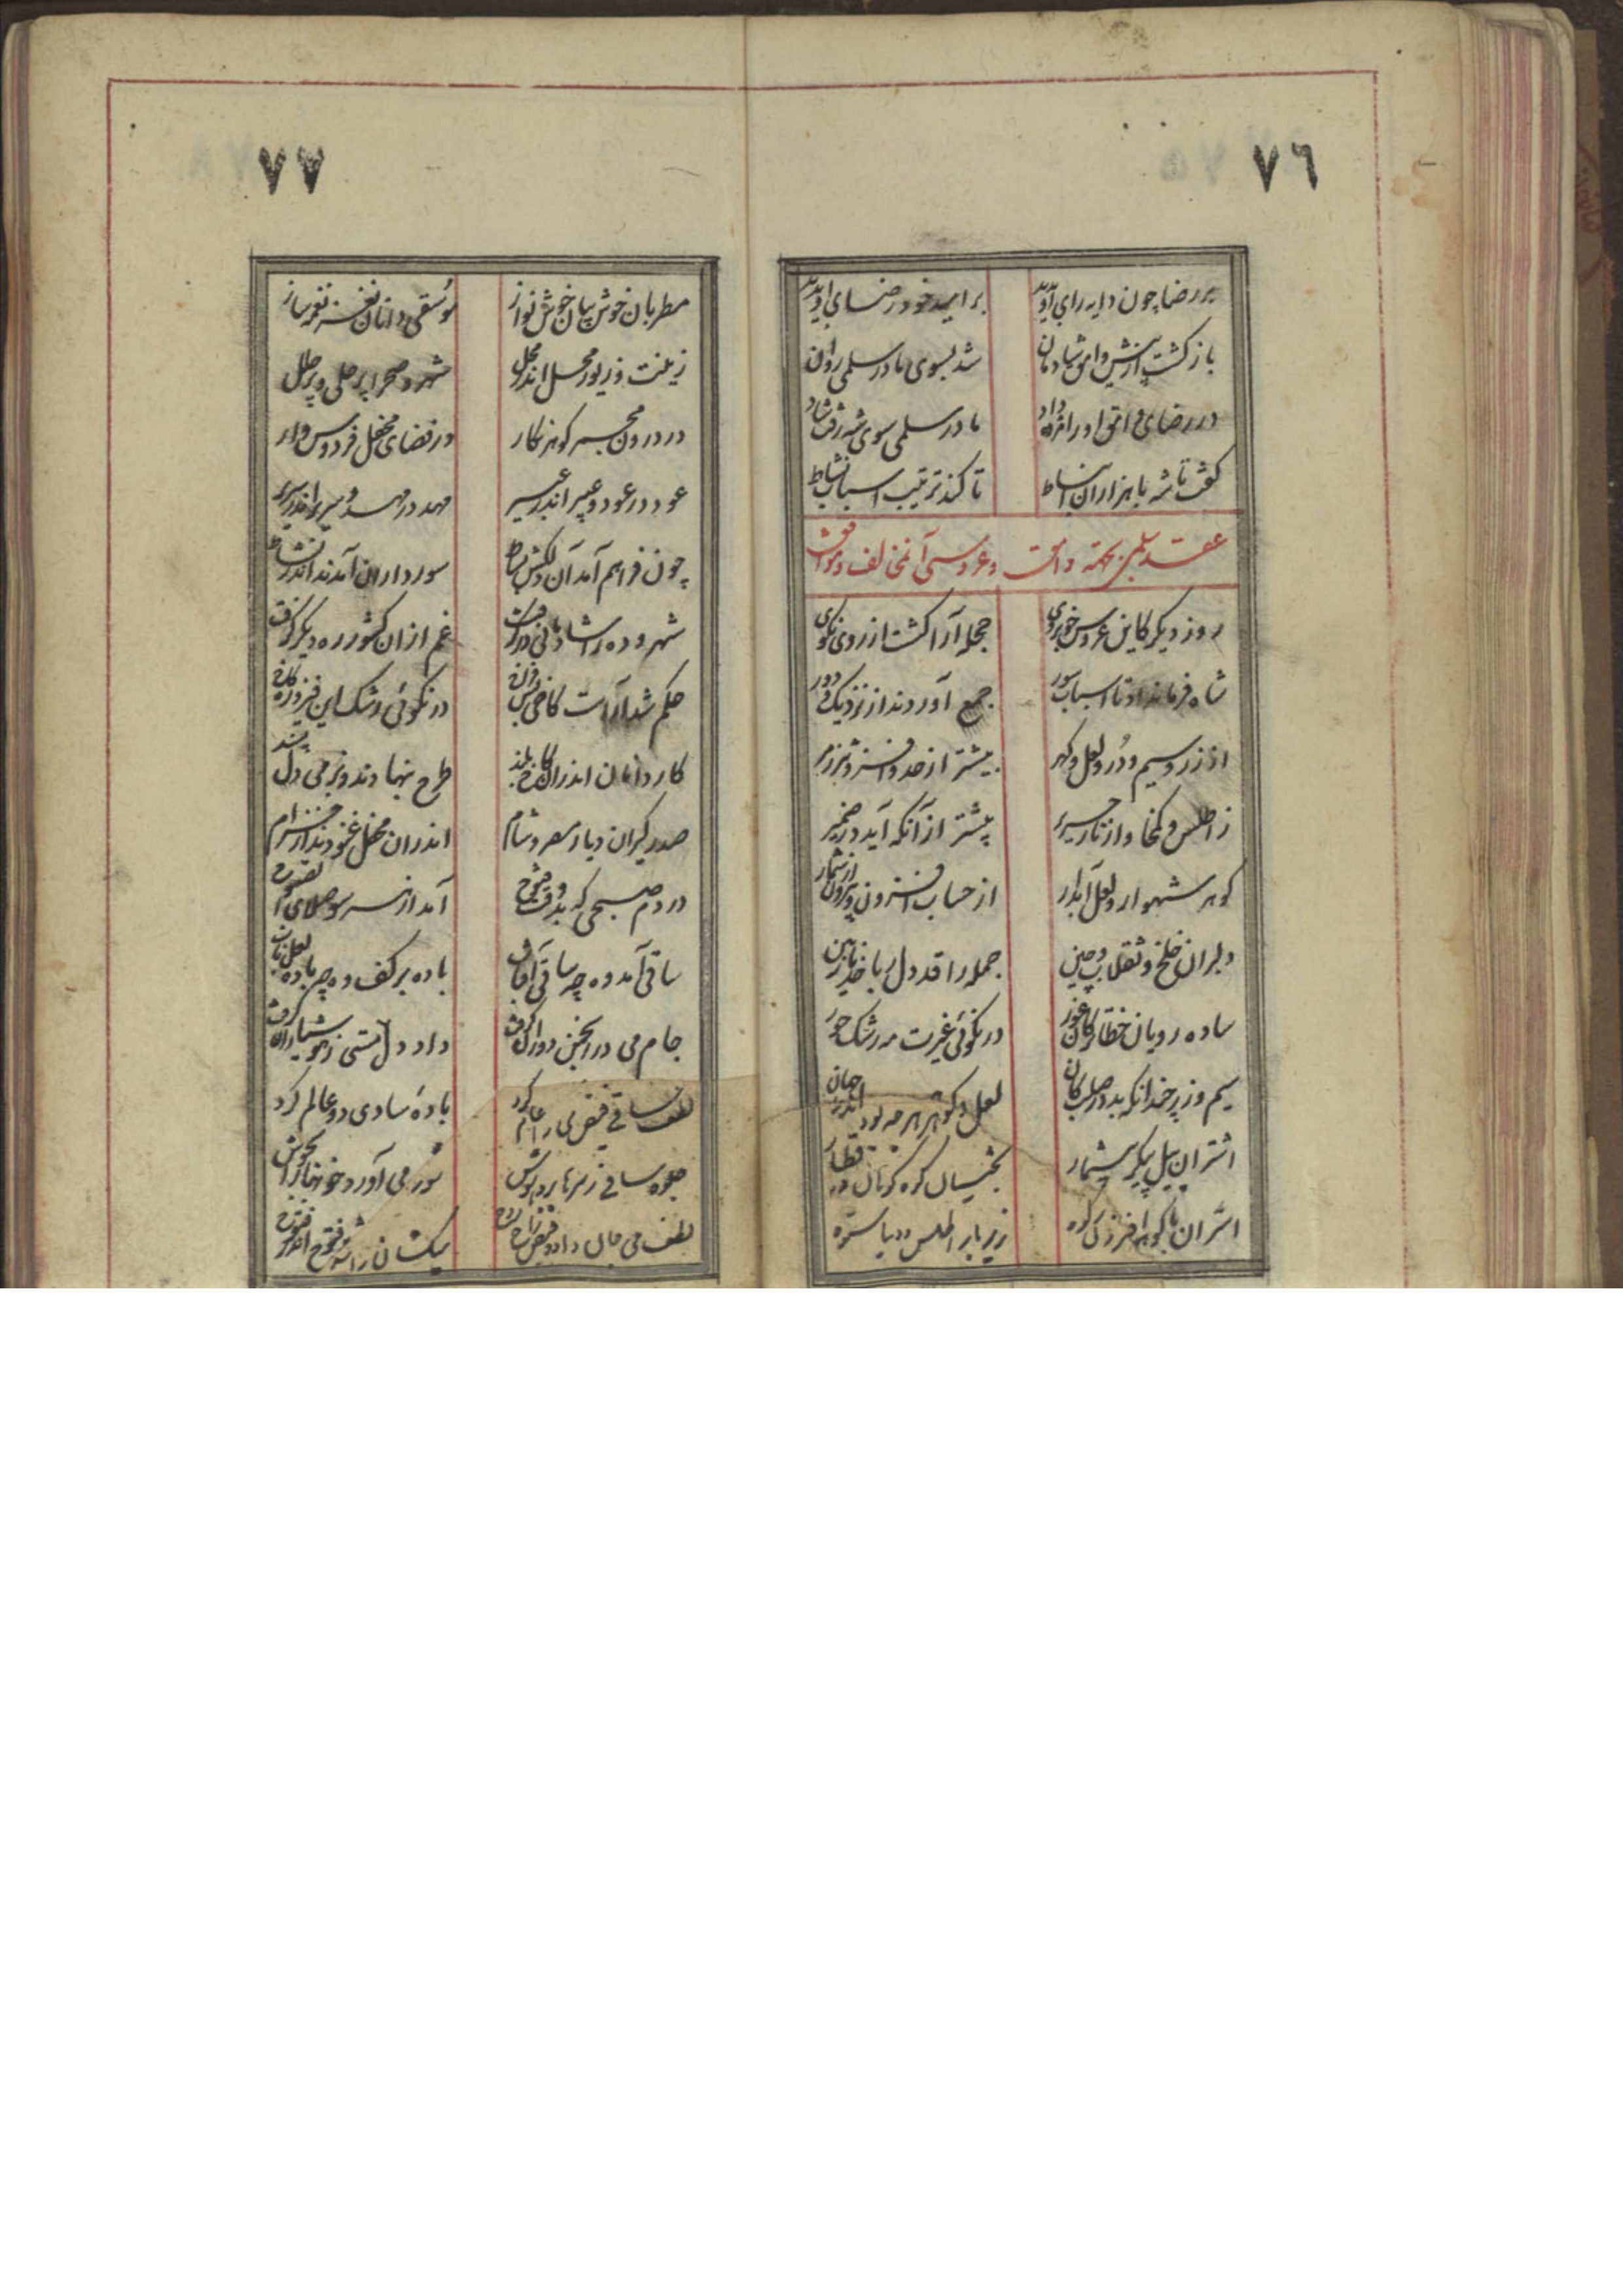 ٧٦
بر رضا چون دایه رای او بدید
بر امید خود رضای او بدید
باز گشت از پیش وامق شادمان
شد بسوی مادر سلمی روان
در رضای وامق او را مژده داد
مادر سلمی سوی شه رفت شاد
گفت تا شه با هزاران انبساط
تا کند ترتیب اسباب نشاط
عقد سلمی وامق و عروسی آن مخالف و موافق
روز دیگر کاین عروس خوبروی
حجله آرا گشت از روی نکوی
شاه فرمان داد تا اسباب سور
جمع آوردند از نزدیک و دور
از زر و سیم و دُر و لعل و گهر
بیشتر از حد و افزونتر ز مر
ز اطلس و کمخا و از تار حریر
پیشتر از آنکه آید در ضمیر
گوهر شهوار و لعل آبدار
از حساب افزون و بیرون از شمار
دلبران خلخ و سقلاب و چین
جمله را قد دل ربا خد نازنین
ساده رویان خطا ترکان غور
در نکوئی غیرت مه رشک حور
سیم و زر چندانکه بد در صلب کان
لعل و گوهر هر چه بود اندر جهان
اشتران پیل پیکر بیشمار
بختیان کوه کوهان در قطار
اشتران با گوهر افزون ز کوه
زیر بار اطلس و دیبا ستوه
٧٧
مطربان خوش بیان خوش نواز
موسقی دانان نغز نغمه ساز
زینت و زیور محل اندر محل
شهر و صحرا پر حلی و پر حلل
در درون مجمر گوهر نگار
در فضای محفل فردوس وار
عود در عود و عبیر اندر عبیر
مهد در مهد و سریر اندر سریر
چون فراهم آمد آن دلکش بساط
سورداران آمدند اندر نشاط
شهر و ده را شادمانی در گرفت
غم از ان کشور ره دیگر گرفت
حکم شد آراست کاخی بس فراخ
در نکوئی رشک این فیروزه کاخ
کاردانان اندران کاخ بلند
طرح بنهادند بزمی دل پسند
صدرگیران دیار مصر و شام
اندران محفل غنودند از خرام
در دم صبحی که بد وقت فتوح
آمد از هر سو صلای الصبوح
ساقی آمد وه چه ساقی آفتاب
باده بر کف وه چه باده لعل ناب
جام می در انجمن دور آن گرفت
داد دل مستی ز هوشیاران گرفت
لطف ساقی فیض می را عام کرد
بادهٔ شادی دو عالم کرد
جلوه ساقی ز سرها برد هوش
شور می آورد خونها را بجوش
لطف می جان داد و فیض راح روح
میکشان را شد فتوح اندر فتوح